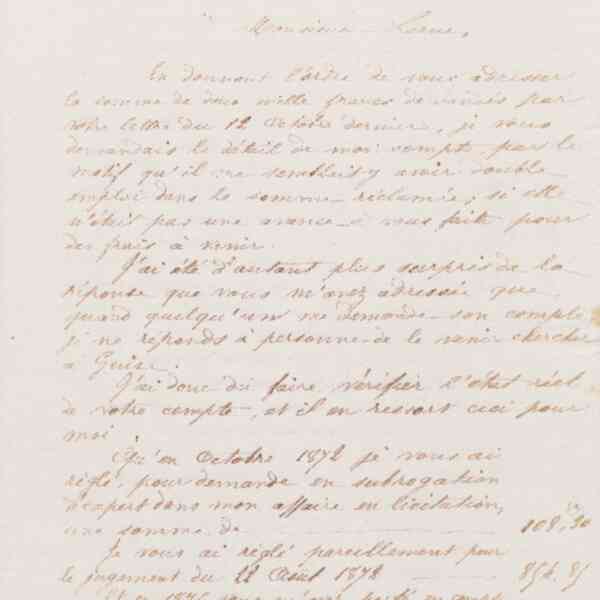 Monsieur
En donnant l'ordre de vous adresser
la somme de deux mille francs demandés par
votre lettre du 12 Octobre dernier, je vous
demandais le détail de mon compte par le
motif qu'il me semblait y avoir double
emploi dans la somme réclamée, si elle
n'était pas une avance à vous faite pour
des frais à venir.
J'ai été d'autant plus surpris de la
réponse que vous m'avez adressée que
quand quelqu'un me demande son compte
je ne réponds à personne de le venir chercher
à Guise.
J'ai donc dû faire vérifier l'état réel
de votre compte, et il en ressort ceci pour
moi
Qu'en Octobre 1872 je vous ai
réglé, pour demande en subrogation
dans mon affaire en licitation,
une somme de 108,30
Je vous ai réglé pareillement pour
le jugement du 22 Août 1872 854.85